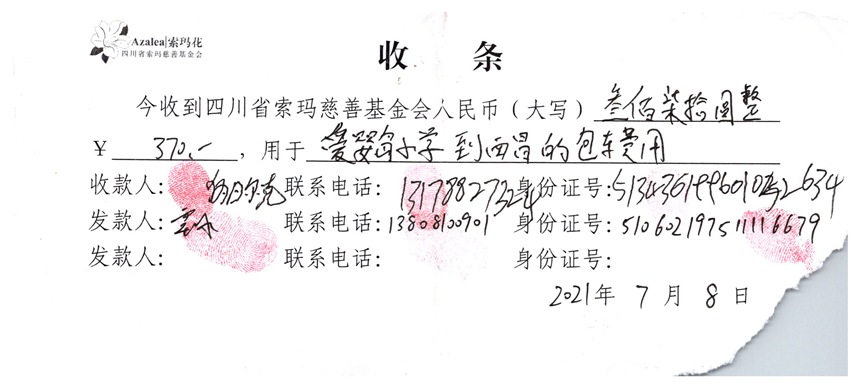 Azalea|索玛花
四川省索玛慈善基金会
收 条
今收到四川省索玛慈善基金会人民币（大写） 叁佰柒拾圆整
￥ 370.- ，用于 小学到西昌的包车费用
收款人： 联系电话：13178827324 身份证号：
发款人： 联系电话：13808100901 身份证号：510602197511116679
发款人： 联系电话： 身份证号：
2021年 7 月 8 日